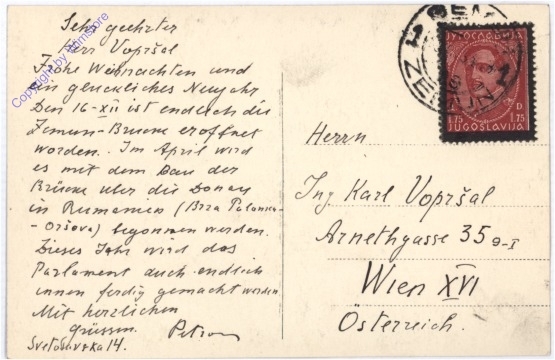 Sehr geehrter
Herr Vopršal
Frohe Weihnachten und
ein glückliches Neujahr
Den 16-XII ist endlich die
Zemun-Brücke eröffnet
worden. Im April wird
es mit dem Bau der
Brücke über die Donau
in Rumanien (Brza Palanka-
-Oršova) begonnen werden.
Dieses Jahr wird das
Parlament auch endlich
innen fertig gemacht werden
Mit herzlichen
Grüssen.
Petrov
Svetosavska 14.
ЗЕМУН
ZEMUN
ЈУГОСЛАВИЈА
D
1.75 1.75
JUGOSLAVIJA
Herrn
Ing Karl Vopršal
Arnethgasse 35 9-I
Wien XVI
Österreich.
Copyright by abmstore